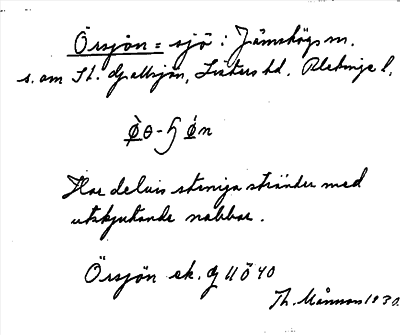 Örsjön = sjö i Jämshögs sn.
s. om St. Galtsjön, Listers hd. Blekinge l.
Har delvis steniga stränder med
utskjutande nabbar.
Örsjön ek.
Th. Månsson 1930.